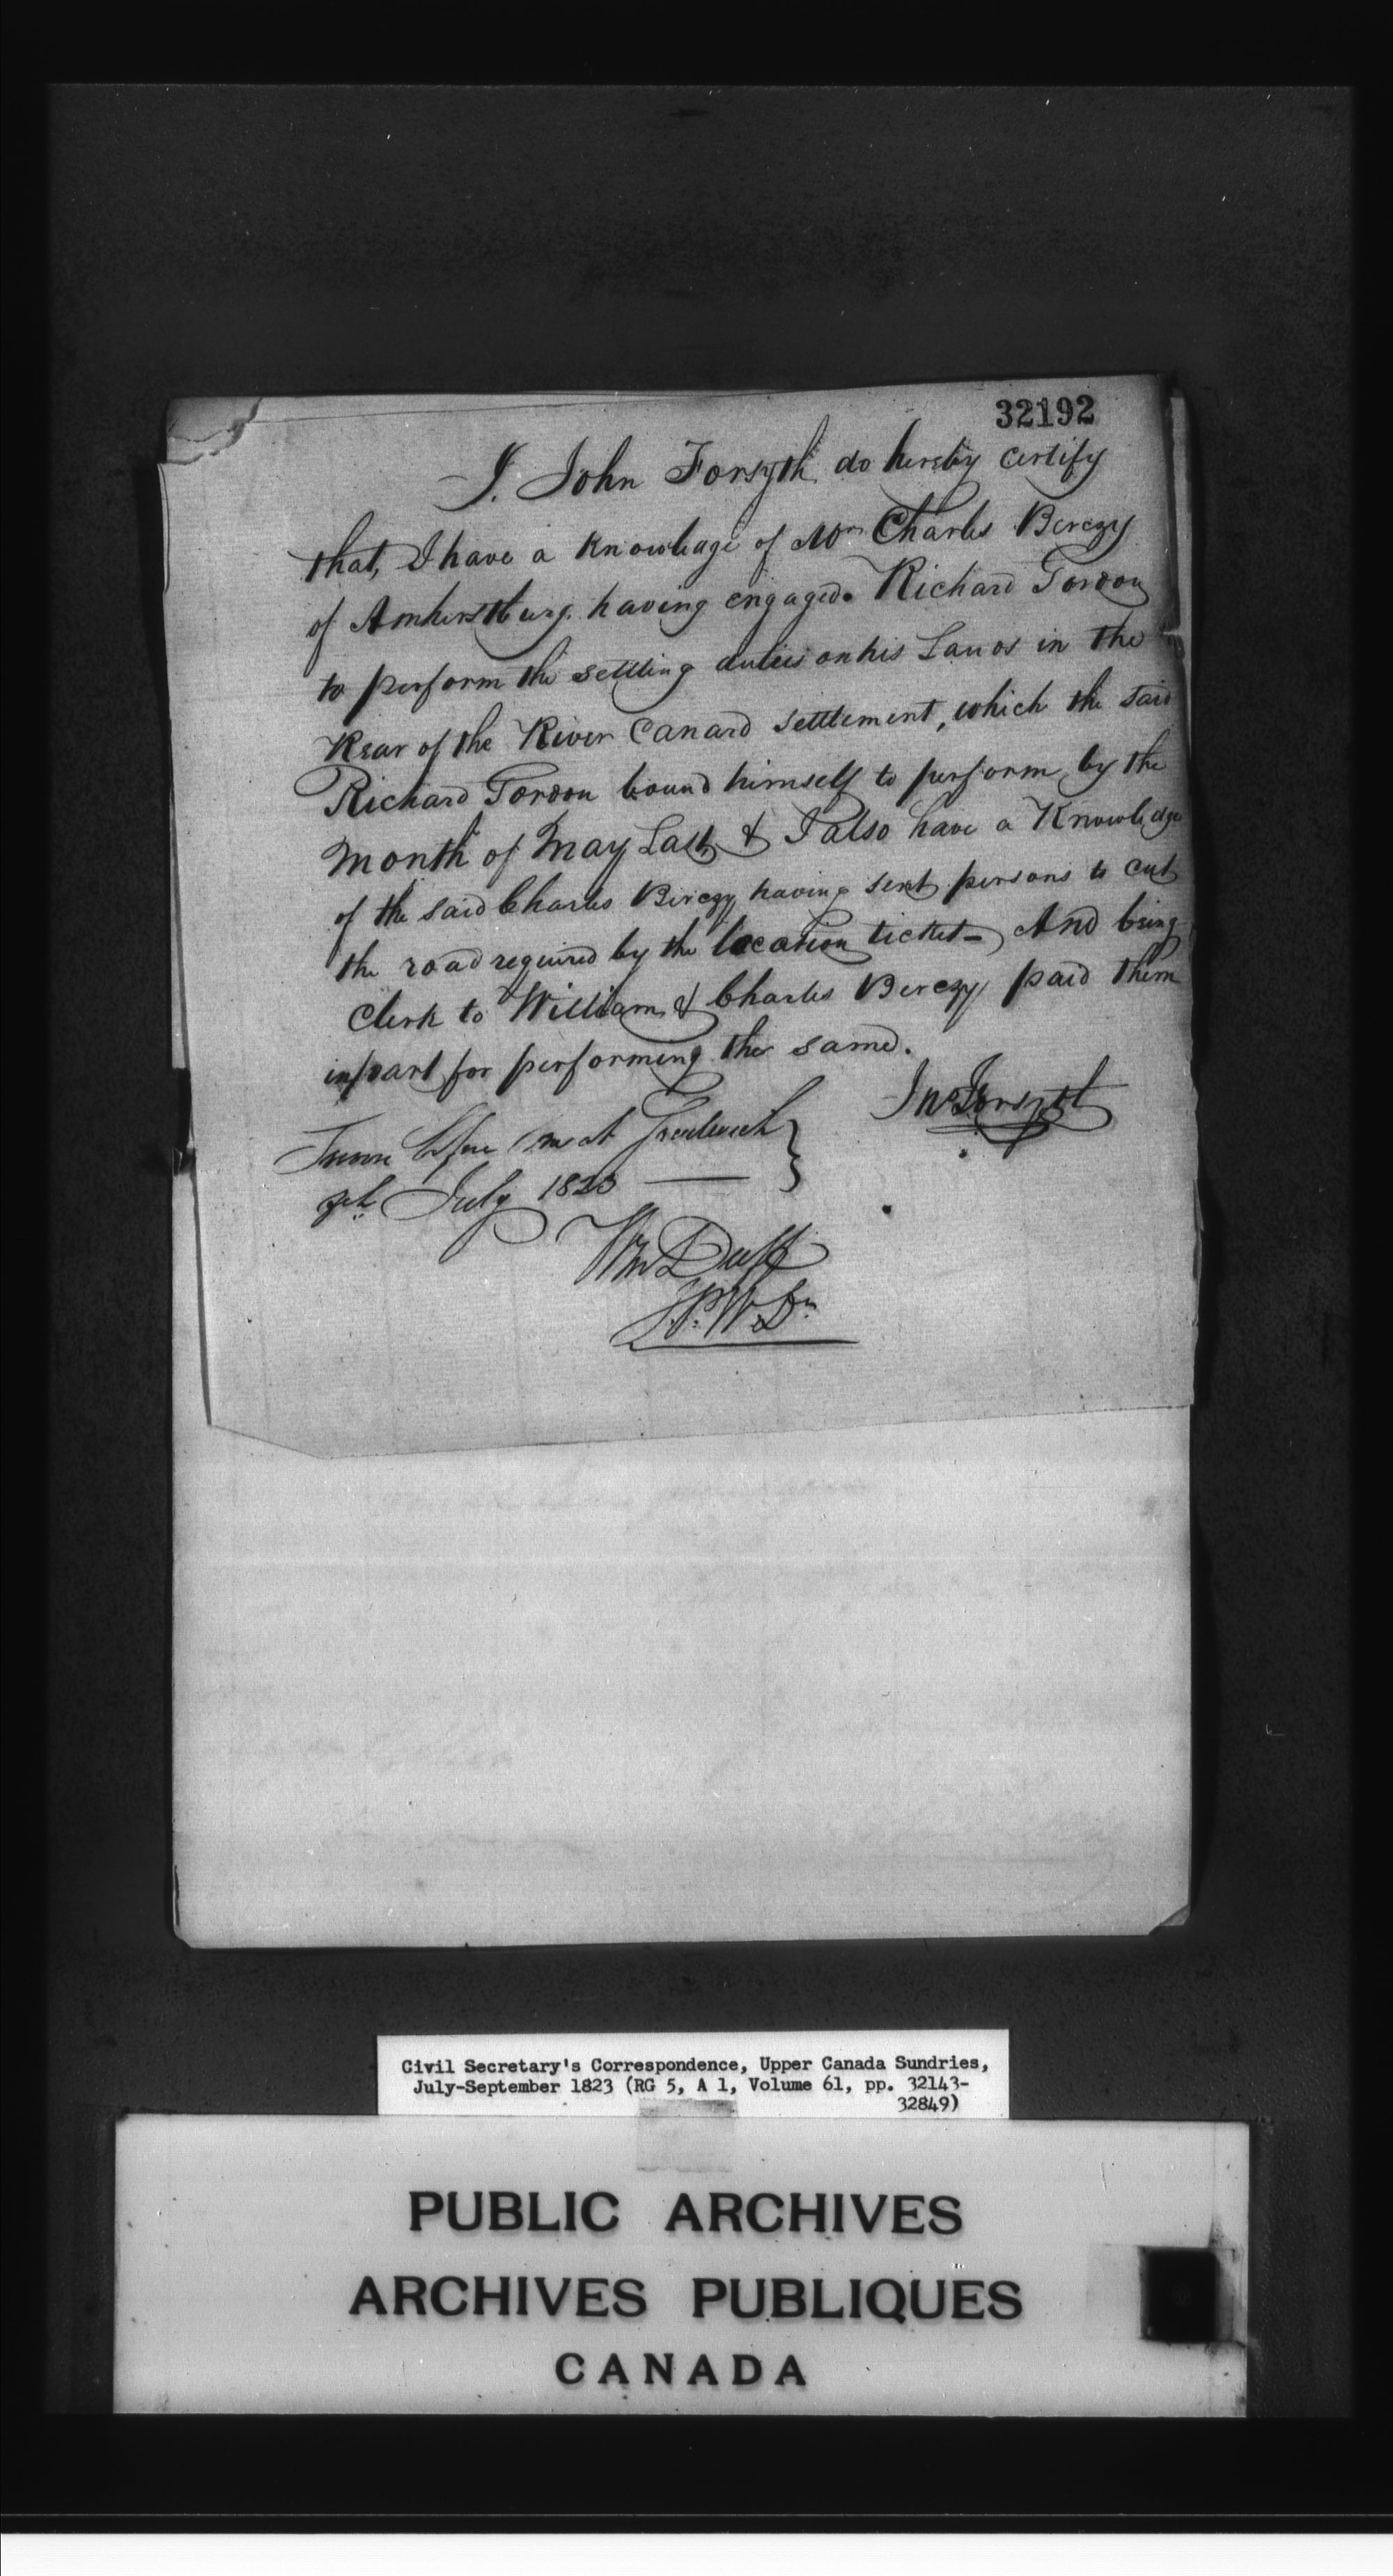 32192
I, John Forsyth do hereby certify
that, I have a Knowledge of Mr Charles Berczy
of Amherstburg having engaged Richard Gordon
to perform the settling duties on his Lands in the
Rear of the River Canard Settlement, which the said
Richard Gordon bound himself to perform by the
Month of May Last & I also have a Knowledge
of the said Charles Berczy having sent persons to cut
the road required by the location ticket – And being
Clerk to William & Charles Berczy paid them
in part for performing the same.
Jno Forsyth
Sworn before me at Sandwich
July 1823
Wm Duff
J.P. W.Dn
Civil Secretary's Correspondence, Upper Canada Sundries,
July-September 1823 (RG 5, A 1, Volume 61, pp. 32143-
32849)
PUBLIC ARCHIVES
ARCHIVES PUBLIQUES
CANADA